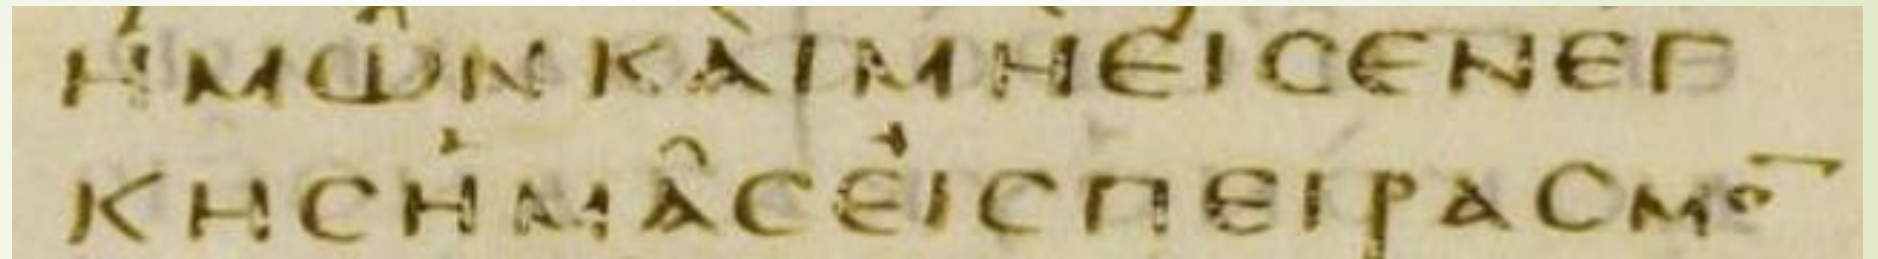 ΗΜΩΝΚΑΙΜΗΕΙϹΕΝΕΓ
ΚΗϹΗΜΑϹΕΙϹΠΕΙΡΑϹΜΟ̅